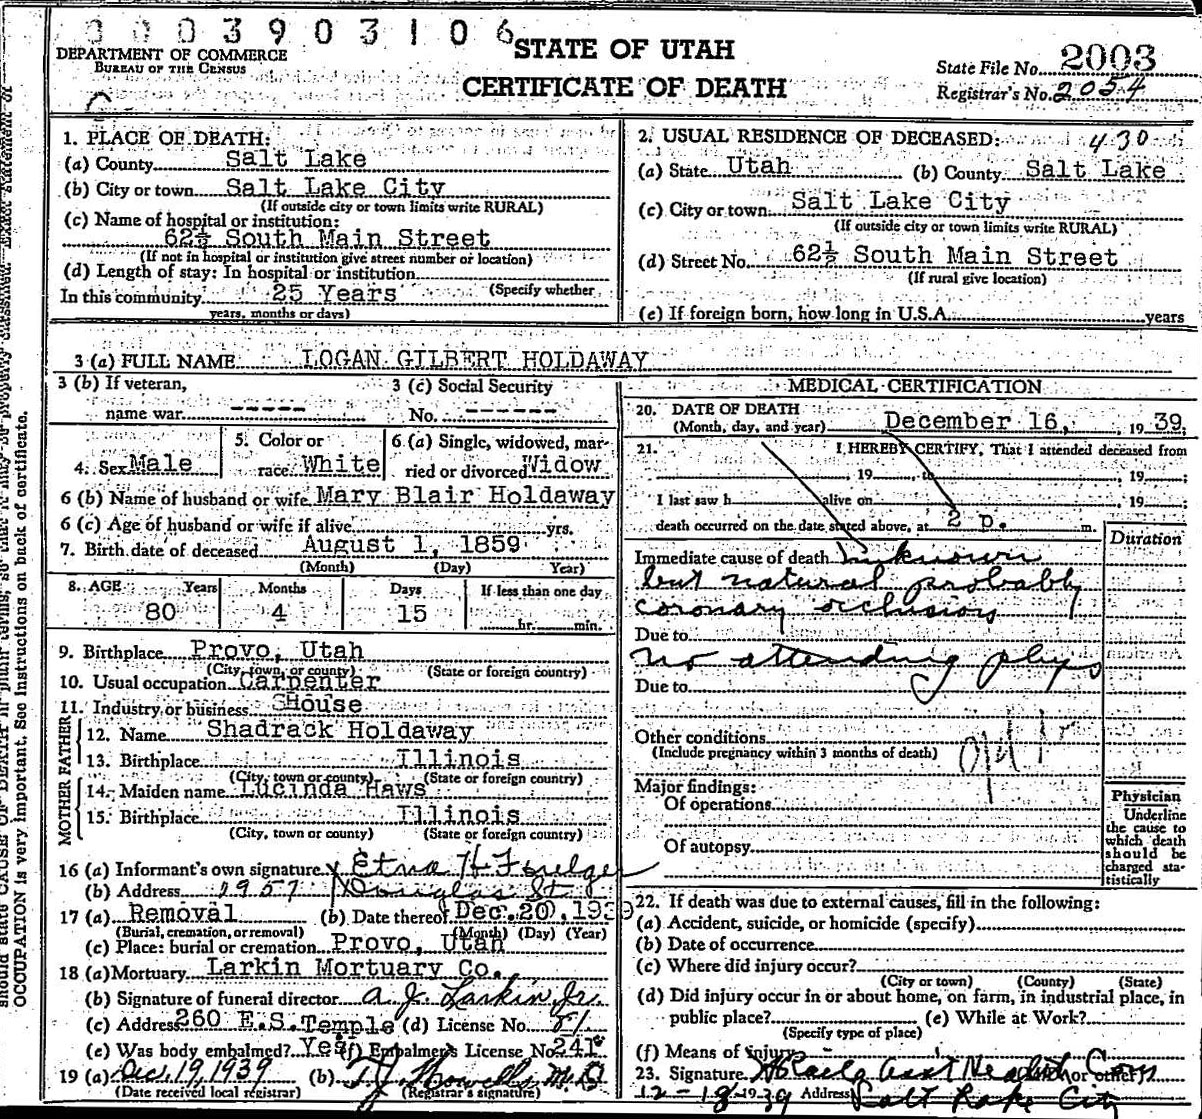 0003903106
DEPARTMENT OF COMMERCE
BUREAU OF THE CENSUS
STATE OF UTAH
CERTIFICATE OF DEATH
State File No. 2003
Registrar's No. 2054
1. PLACE OF DEATH:
(a) County Salt Lake
(b) City or town Salt Lake City
(If outside city or town limits write RURAL)
(c) Name of hospital or institution:
62½ South Main Street
(If not in hospital or institution give street number or location)
(d) Length of stay: In hospital or institution
(Specify whether
In this community 25 Years
years, months or days)
2. USUAL RESIDENCE OF DECEASED: 430
(a) State Utah (b) County Salt Lake
(c) City or town Salt Lake City
(If outside city or town limits write RURAL)
(d) Street No. 62½ South Main Street
(If rural give location)
(e) If foreign born, how long in U.S.A. years
3 (a) FULL NAME LOGAN GILBERT HOLDAWAY
3 (b) If veteran,
name war -----
3 (c) Social Security
No. ------
4. Sex Male
5. Color or
race White
6 (a) Single, widowed, mar-
ried or divorced Widow
6 (b) Name of husband or wife Mary Blair Holdaway
6 (c) Age of husband or wife if alive yrs.
7. Birth date of deceased August 1, 1859
(Month) (Day) Year)
8. AGE Years Months Days If less than one day
80 4 15 hr. min.
9. Birthplace Provo, Utah
(City, town, or county) (State or foreign country)
10. Usual occupation Carpenter
11. Industry or business House
FATHER
12. Name Shadrack Holdaway
13. Birthplace Illinois
(City, town or county) (State or foreign country)
MOTHER
14. Maiden name Lucinda Haws
15. Birthplace Illinois
(City, town or county) (State or foreign country)
16 (a) Informant's own signature x Etna H
(b) Address 1957 Douglas St
17 (a) Removal (b) Date thereof Dec. 20, 1939
(Burial, cremation, or removal) (Month) (Day) (Year)
(c) Place: burial or cremation Provo, Utah
18 (a) Mortuary Larkin Mortuary Co.,
(b) Signature of funeral director A. J. Larkin Jr.
(c) Address 260 E.S.Temple (d) License No. 81
(e) Was body embalmed? Yes (f) Embalmer's License No. 241
19 (a) Dec. 19, 1939 (b) T.J. Howells, M.D
(Date received local registrar) (Registrar's signature)
MEDICAL CERTIFICATION
20. DATE OF DEATH
(Month, day, and year) December 16, 1939.
21. I HEREBY CERTIFY, That I attended deceased from
, 19 , to , 19 ;
I last saw h alive on , 19 ;
death occurred on the date stated above, at 2 p. m.
Duration
Immediate cause of death Unknown
but natural probably
coronary occlusion
Due to
No attending phys
Due to
Other conditions
(Include pregnancy within 3 months of death)
Major findings:
Of operations
Of autopsy
Physician
Underline
the cause to
which death
should be
charged sta-
tistically
22. If death was due to external causes, fill in the following:
(a) Accident, suicide, or homicide (specify)
(b) Date of occurrence
(c) Where did injury occur?
(City or town) (County) (State)
(d) Did injury occur in or about home, on farm, in industrial place, in
public place? (e) While at Work?
(Specify type of place)
(f) Means of injury
23. Signature Asst Health Com or other)
12-18-1939 Address Salt Lake City
should state CAUSE OF DEATH in plain terms, so that it may be properly classified. Exact statement of
OCCUPATION is very important. See Instructions on back of certificate.